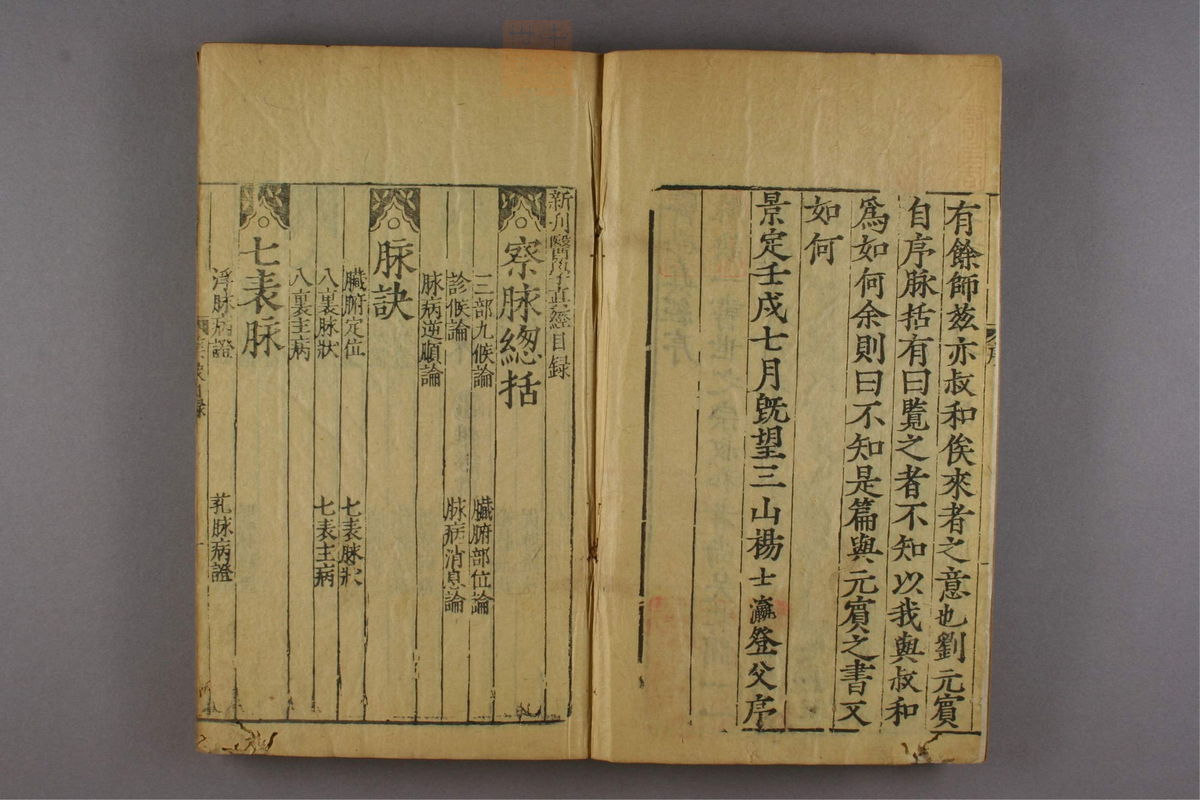 有餘師茲亦叔和俟來者之意也劉元賓
自序脉括有曰覽之者不知以我與叔和
爲如何余則曰不知是篇與元賓之書又
如何
景定壬戌七月旣望三山楊士瀛登父序
新刋醫學真經目録
察脉緫括
三部九候論 臟腑部位論
診候論 脉病消息論
脉病逆順論
脉訣
臟腑定位 七表脉狀
八裏脉狀 七表主病
八裏主病
七表脉
浮脉病證 芤脉病證